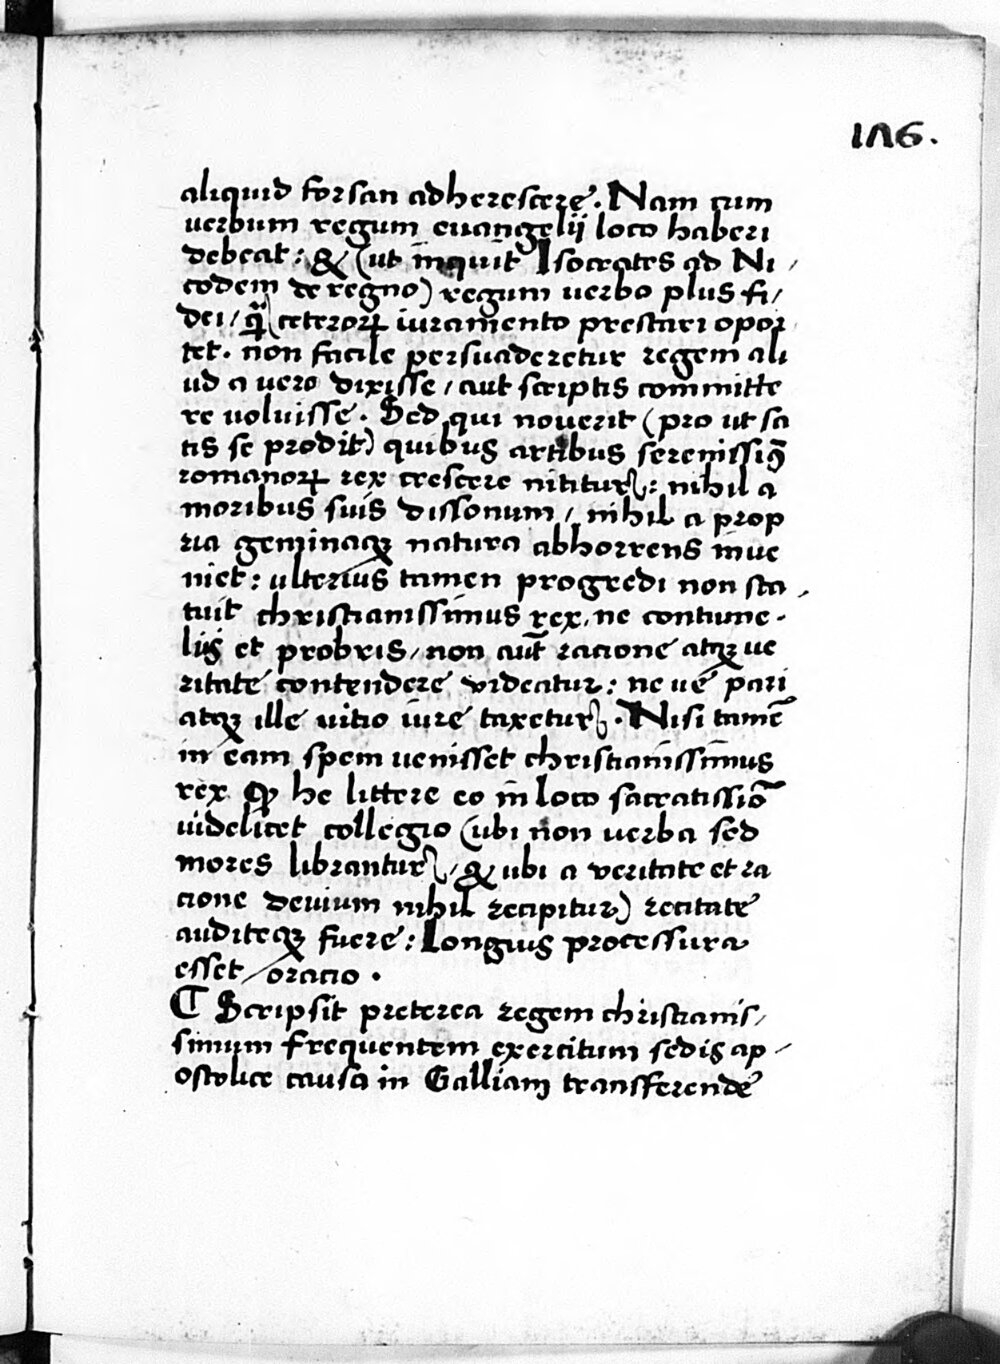 1Λ6.
aliquid forsan adherescere. Nam cum
uerbum regum euangelij loco haberi
debeat: & (ut inquit Isocrates ad Ni
codem de regno) regum uerbo plus fi/
dei/ q̃ ceterorꝝ iuramento prestari opor
tet. non facile persuaderetur regem ali
ud a uero dixisse/ aut scriptis committe
re uoluisse. Sed qui nouerit (pro ut sa
tis se prodit) quibus artibus serenissiq̃
romanorꝝ rex crescere nititur: nihil a
moribus suis dissonum/ nihil a prop
ria geminaqꝫ natura abhorrens inue
niet: ulterius tamen progredi non sta
tuit christianissimus rex, ne contume-
lijs et probris/ non aut̃ racione atqꝫ ue
ritate contendere videatur: ne ue pari
atqꝫ ille uitio iure taxetur. Nisi tamē
in eam spem uenisset christianissimus
rex ꝙ he littere eo in loco sacratissiō
uidelicet collegio (ubi non uerba sed
mores librantur/ & ubi a veritate et ra
cione deuium nihil recipitur) recitate
auditeqꝫ fuere: Longius processura
esset oracio.
¶ Scripsit preterea regem christianis/
simum frequentem exercitum sedis ap
ostolice causa in Galliam transferende